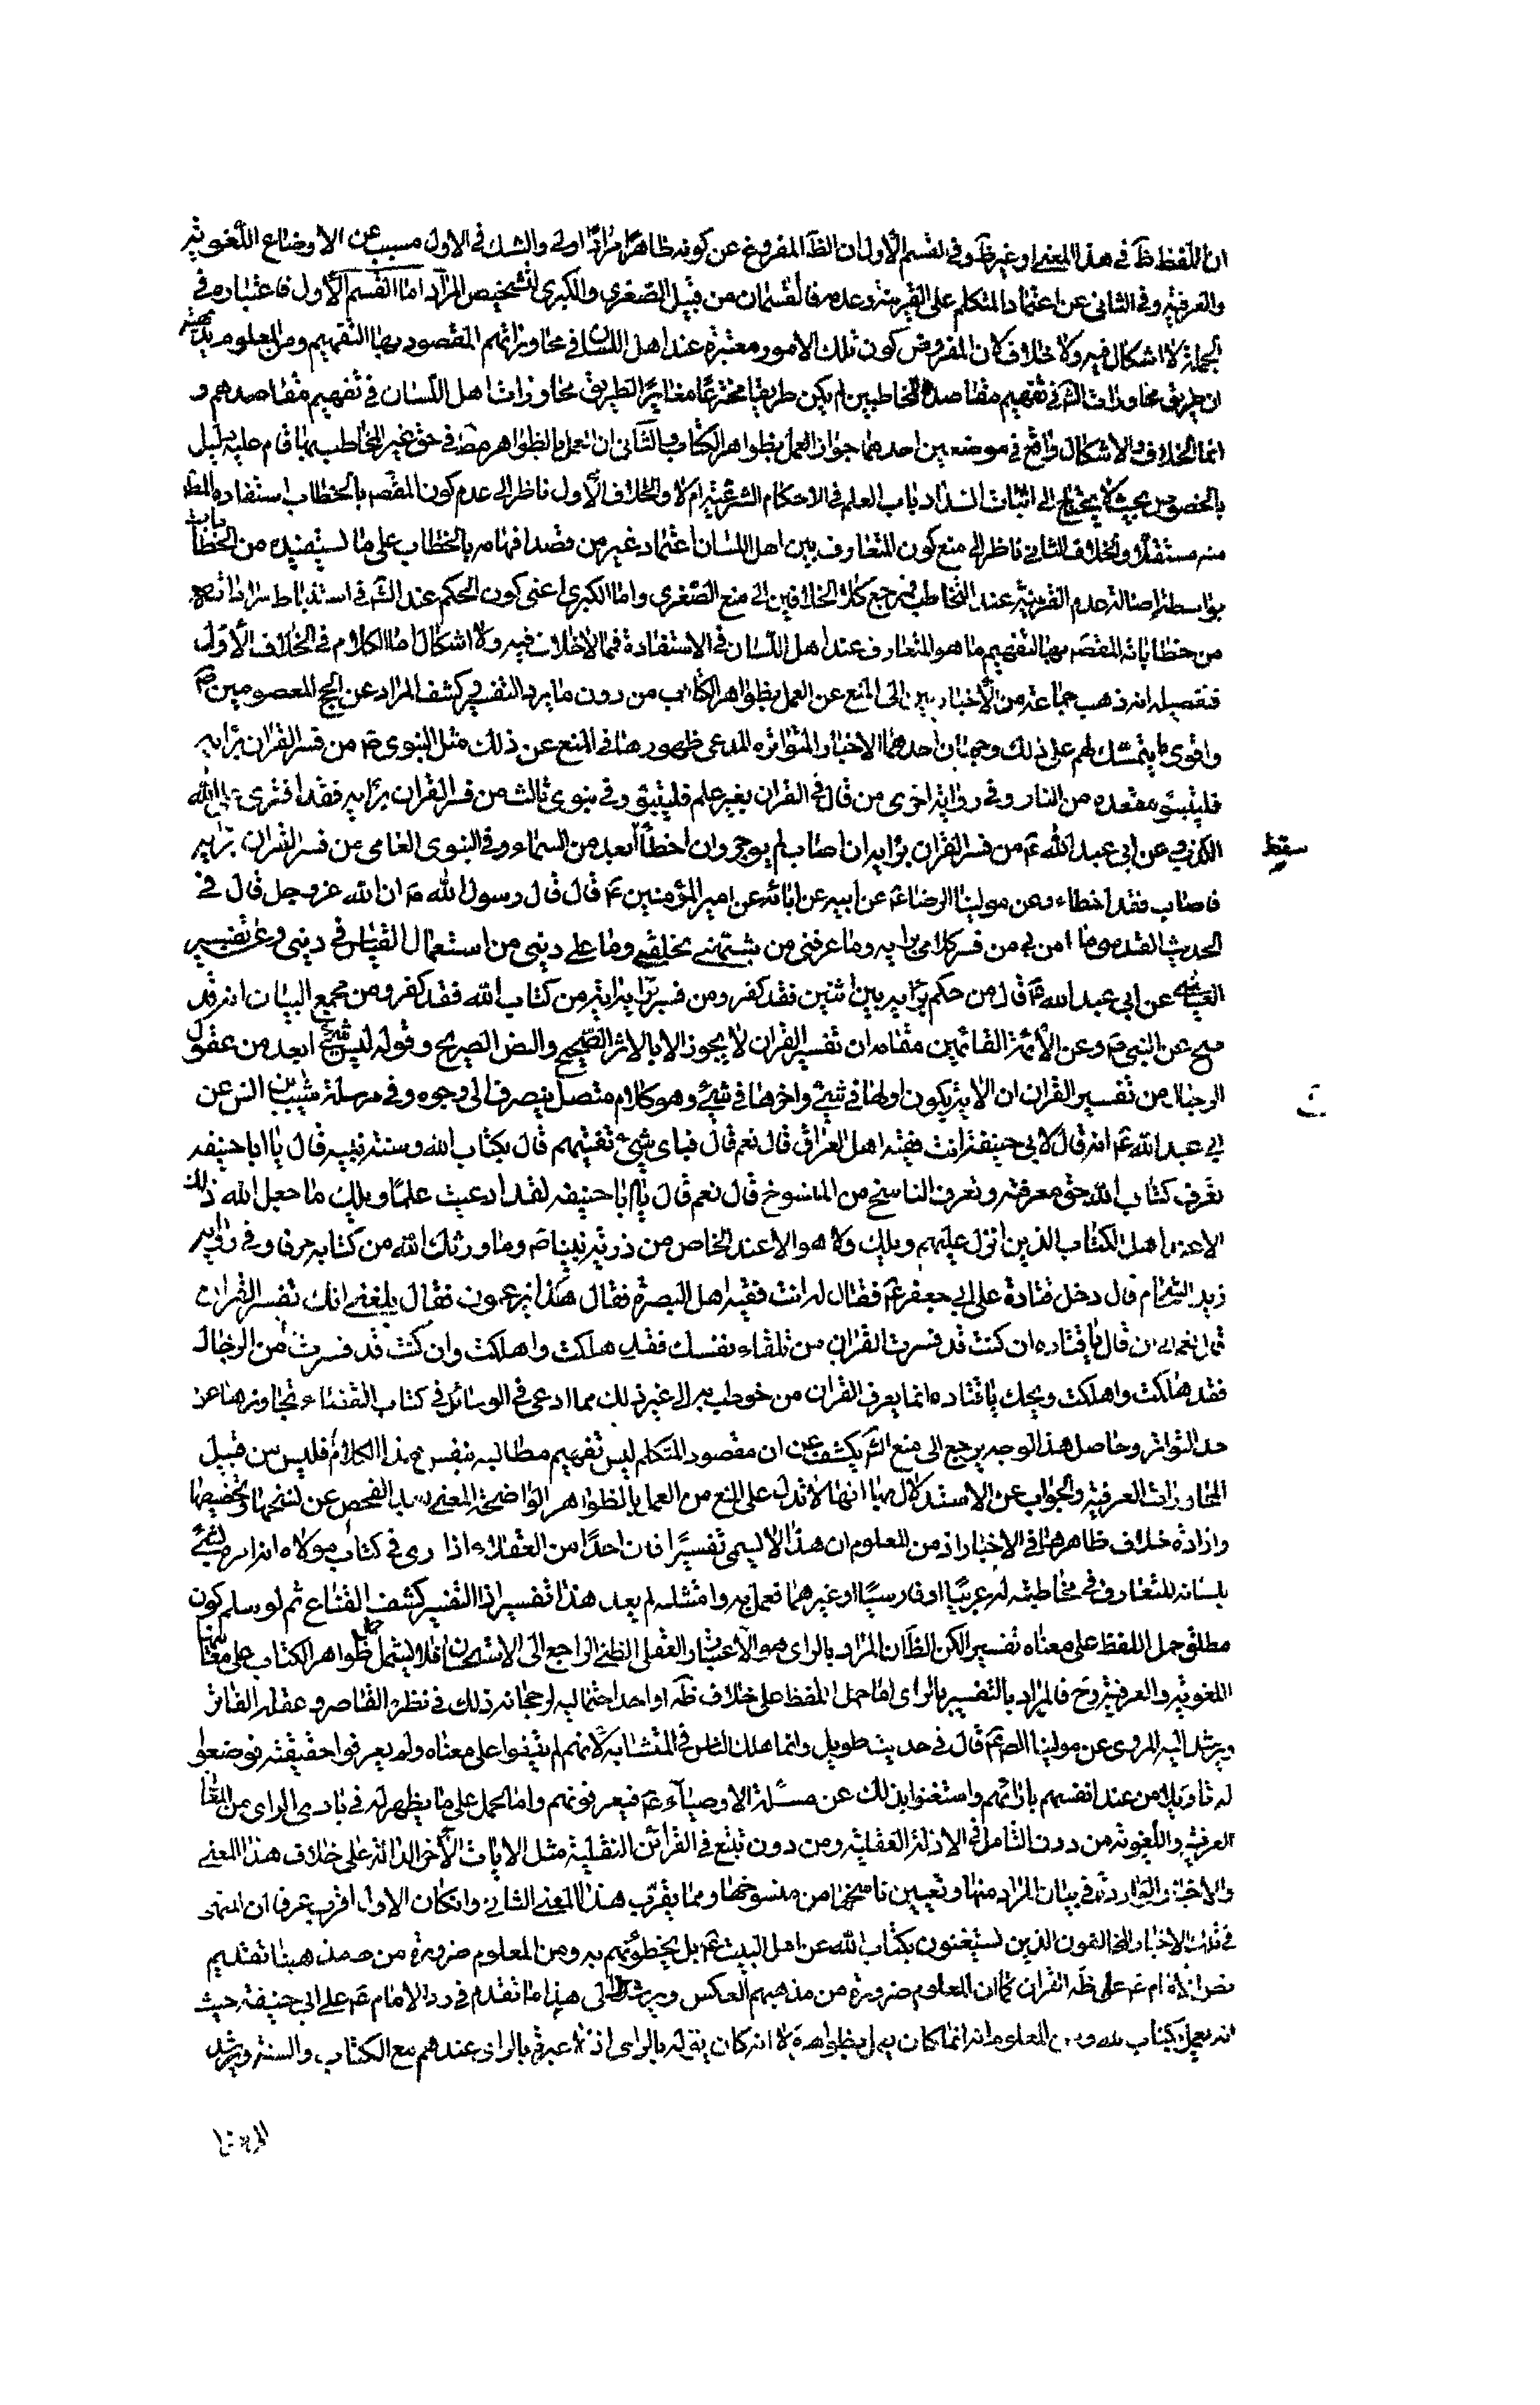 ان اللفظ ظ في هذا المعنى او غير ظ وفي القسم الأول ان الظ المفروغ عن كونه ظاهرا مرادا اولى والشك في الاول مسبب عن الأوضاع اللغوية
والعرفية وفي الثاني عن اعتماد المتكلم على القرينة وعدمه فالقسمان من قبيل الصغرى والكبرى لتشخيص المراد اما القسم الأول فاعتباره في
الجملة لا اشكال فيه ولا خلاف لان المفروض كون تلك الأمور معتبرة عند اهل اللسان في محاوراتهم المقصود بها التفهيم ومن المعلوم بديهة
ان طريق محاورات الش في تفهيم مقاصده للمخاطبين لم يكن طريقا مخترعا مغايرا لطريق محاورات اهل اللسان في تفهيم مقاصدهم و
انما الخلاف والاشكال واقع في موضعين احدهما جواز العمل بظواهر الكتاب والثاني ان العمل بالظواهر مط في حق غير المخاطب بها قام عليه دليل
بالخصوص بحيث لا يحتاج الى اثبات انسداد باب العلم في الاحكام الشرعية ام لا والخلاف الأول ناظر الى عدم كون المقصد بالخطاب استفادة المط
منه مستقلا والخلاف الثاني ناظر الى منع كون المتعارف بين اهل اللسان اعتماد غير من قصد افهامه بالخطاب على ما يستفيده من الخطاب
بواسطة اصالة عدم القرينة عند التخاطب فمرجع كلا الخلافين الى منع الصغرى واما الكبرى اعنى كون الحكم عند الش في استنباط مراداته
من خطاباته المقصد بها التفهيم ما هو المتعارف عند اهل اللسان في الاستفادة فمما لا خلاف فيه ولا اشكال اما الكلام في الخلاف الأول
فتفصيله انه ذهب جماعة من الأخباريين الى المنع عن العمل بظواهر الكتاب من دون ما يرد التفسير وكشف المراد عن الحجج المعصومين ص
واقوى ما يتمسك لهم على ذلك وجهان احدهما الاخبار المتواترة المدعى ظهورها في المنع عن ذلك مثل النبوي ص من فسر القران برايه
فليتبوء مقعده من النار وفي رواية اخرى من قال في القران بغير علم فليتبوء وفي نبوي ثالث من فسر القران برايه فقد افترى على الله
الكذب وعن ابي عبد الله ع من فسر القران برايه ان اصاب لم يوجر وان اخطأ ابعد من السماء وفي النبوي العامي من فسر القران برايه
فاصاب فقد اخطاء وعن مولينا الرضا ع عن ابيه عن ابائه عن امير المؤمنين ع قال قال رسول الله ص ان الله عز وجل قال في
الحديث القدسي ما امن بي من فسر كلامي برايه وما عرفني من شبهني بخلقي وما على ديني من استعمال القياس في ديني وعن تفسير
العياشي عن ابي عبد الله ع قال من حكم برايه بين اثنين فقد كفر ومن فسر برايه اية من كتاب الله فقد كفر ومن مجمع البيان انه قد
صح عن النبي ص وعن الأئمة القائمين مقامه ان تفسير القران لا يجوز الا بالاثر الصحيح والنص الصريح وقوله ليس شيئ ابعد من عقول
الرجال من تفسير القران ان الاية يكون اولها في شيئ واخرها في شيئ وهو كلام متصل ينصرف الى وجوه وفي مرسلة شبيب بن انس عن
ابي عبد الله ع انه قال لابي حنيفة انت فقيه اهل العراق قال نعم قال فباي شيئ تفتيهم قال بكتاب الله وسنة نبيه قال يا ابا حنيفه
تعرف كتاب الله حق معرفته وتعرف الناسخ من المنسوخ قال نعم قال يا ابا حنيفه لقد ادعيت علما ويلك ما جعل الله ذلك
الا عند اهل الكتاب الذين انزل عليهم ويلك ولا هو الا عند الخاص من ذرية نبينا ص وما ورثك الله من كتابه حرفا وفي رواية
زيد الشحام قال دخل قتادة على ابي جعفر ع فقال له انت فقيه اهل البصرة فقال هكذا يزعمون فقال بلغني انك تفسر القران
قال نعم الى ان قال يا قتاده ان كنت قد فسرت القران من تلقاء نفسك فقد هلكت واهلكت وان كنت قد فسرت من الرجال
فقد هلكت واهلكت ويحك يا قتاده انما يعرف القران من خوطب به الى غير ذلك مما ادعى في الوسائل في كتاب القضاء تجاوزها عن
حد التواتر وحاصل هذا الوجه يرجع الى منع الش يكشف عن ان مقصود المتكلم ليس تفهيم مطالبه بنفس هذا الكلام فليس من قبيل
المحاورات العرفية والجواب عن الاستدلال بها انها لا تدل على المنع من العمل بالظواهر الواضحة المعنى بعد الفحص عن نسخها وتخصيصها
وارادة خلاف ظاهرها في الاخبار اذ من المعلوم ان هذا لا يسمى تفسيرا فان احدا من العقلاء اذا راى في كتاب مولاه انه امره بشيئ
بلسانه المتعارف في مخاطبته له عربيا او فارسيا او غيرهما فعمل به وامتثله لم يعد هذا تفسيرا اذ التفسير كشف القناع ثم لو سلم كون
مطلق حمل اللفظ على معناه تفسيرا لكن الظ ان المراد بالراى هو الأعتبار العقلي الظني الراجع الى الاستحسان فلا يشمل حمل ظواهر الكتاب على معانيها
اللغوية والعرفية وح فالمراد بالتفسير بالراى اما حمل اللفظ على خلاف ظه او احد احتماليه لرجحان ذلك في نظره القاصر وعقله الفاتر
ويرشد اليه المروى عن مولينا الص ع قال في حديث طويل وانما هلك الناس في المتشابه لأنهم لم يقفوا على معناه ولم يعرفوا حقيقته فوضعوا
له تاويلا من عند انفسهم بارائهم واستغنوا بذلك عن مسئلة الاوصياء ع فيعرفونهم واما الحمل على ما يظهر له في بادى الراى من المعاني
العرفية واللغوية من دون التامل في الادلة العقلية ومن دون تتبع في القرائن النقلية مثل الايات الأخر الدالة على خلاف هذا المعنى
والاخبار الواردة في بيان المراد منها وتعيين ناسخها من منسوخها ومما يقرب هذا المعنى الثاني وان كان الاول اقرب عرفا ان المنهى
في تلك الاخبار المخالفون الذين يستغنون بكتاب الله عن اهل البيت ع بل يخطؤنهم به ومن المعلوم ضرورة من مذهبنا تقديم
نص الامام ع على ظه القران كما ان المعلوم ضرورة من مذهبهم العكس ويرشدك الى هذا ما تقدم في رد الامام ع على ابي حنيفة حيث
انه يعمل بكتاب الله ومن المعلوم انه انما كان يعمل بظواهره لا انه كان يؤله بالراى اذ لا عبرة بالراى عندهم مع الكتاب والسنة ويرشد
سقط